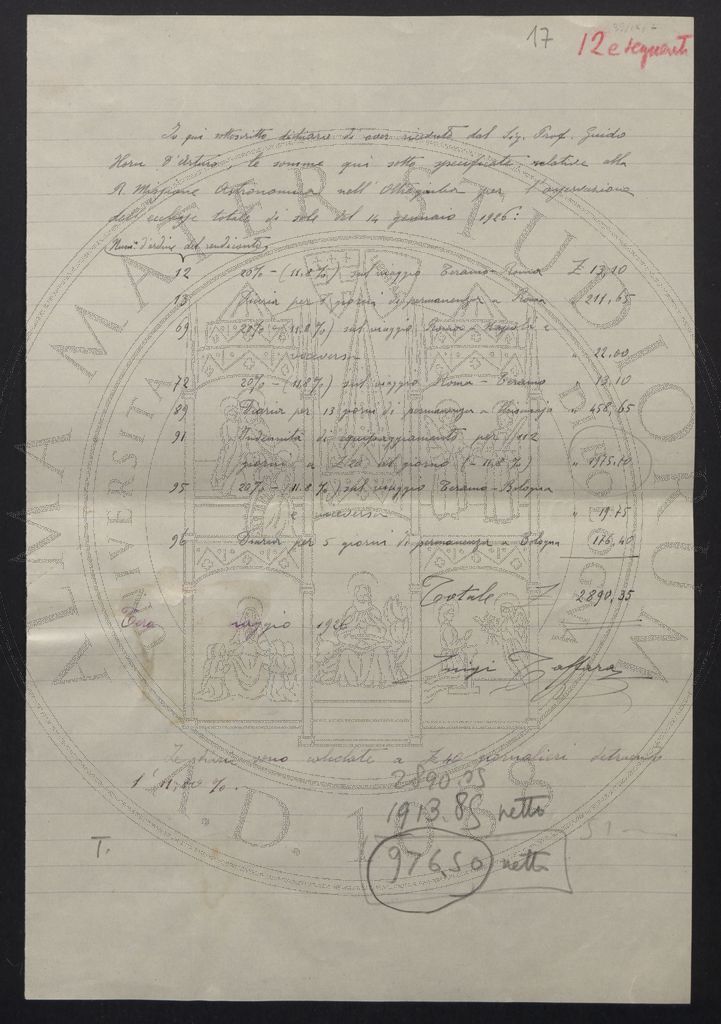 17 12 e seguenti
Io qui sottoscritto dichiaro di aver ricevuto dal Sig. Prof. Guido
Horn d'Arturo, le somme qui sotto specificate, relative alla
R. Missione Astronomica nell'Oltregiuba per l'osservazione
dell'eclisse totale di sole del 14 gennaio 1926:
Num. d'ordine del rendiconto
12 20% - (11.8%) sul viaggio Teramo - Roma £ 13,10
13 Diaria per giorni di permanenza a Roma " 211,65
69 20% - (11.8%) sul viaggio Roma - Napoli e
viceversa " 22.00
72 20% - (11.8%) sul viaggio Roma - Teramo " 13.10
89 Diaria per 13 giorni di permanenza a " 458,65
91 Indennità di equipaggiamento per 112
giorni a £ 20 al giorno (- 11,8%) " 1975.70
95 20% - (11.8%) sul viaggio Teramo - Bologna
e viceversa " 19.75
96 Diaria per 5 giorni di permanenza a Bologna 176,40
Totale £ 2890,35
1926
Luigi Taffara
Le diarie sono calcolate a £ 40 giornalieri detraendo
l' 11,80 %.
2890.35
1913.85 netto
976,50 netto
T.
ALMA MATER STUDIORUM
UNIVERSITÀ DI BOLOGNA
A.D. 1088